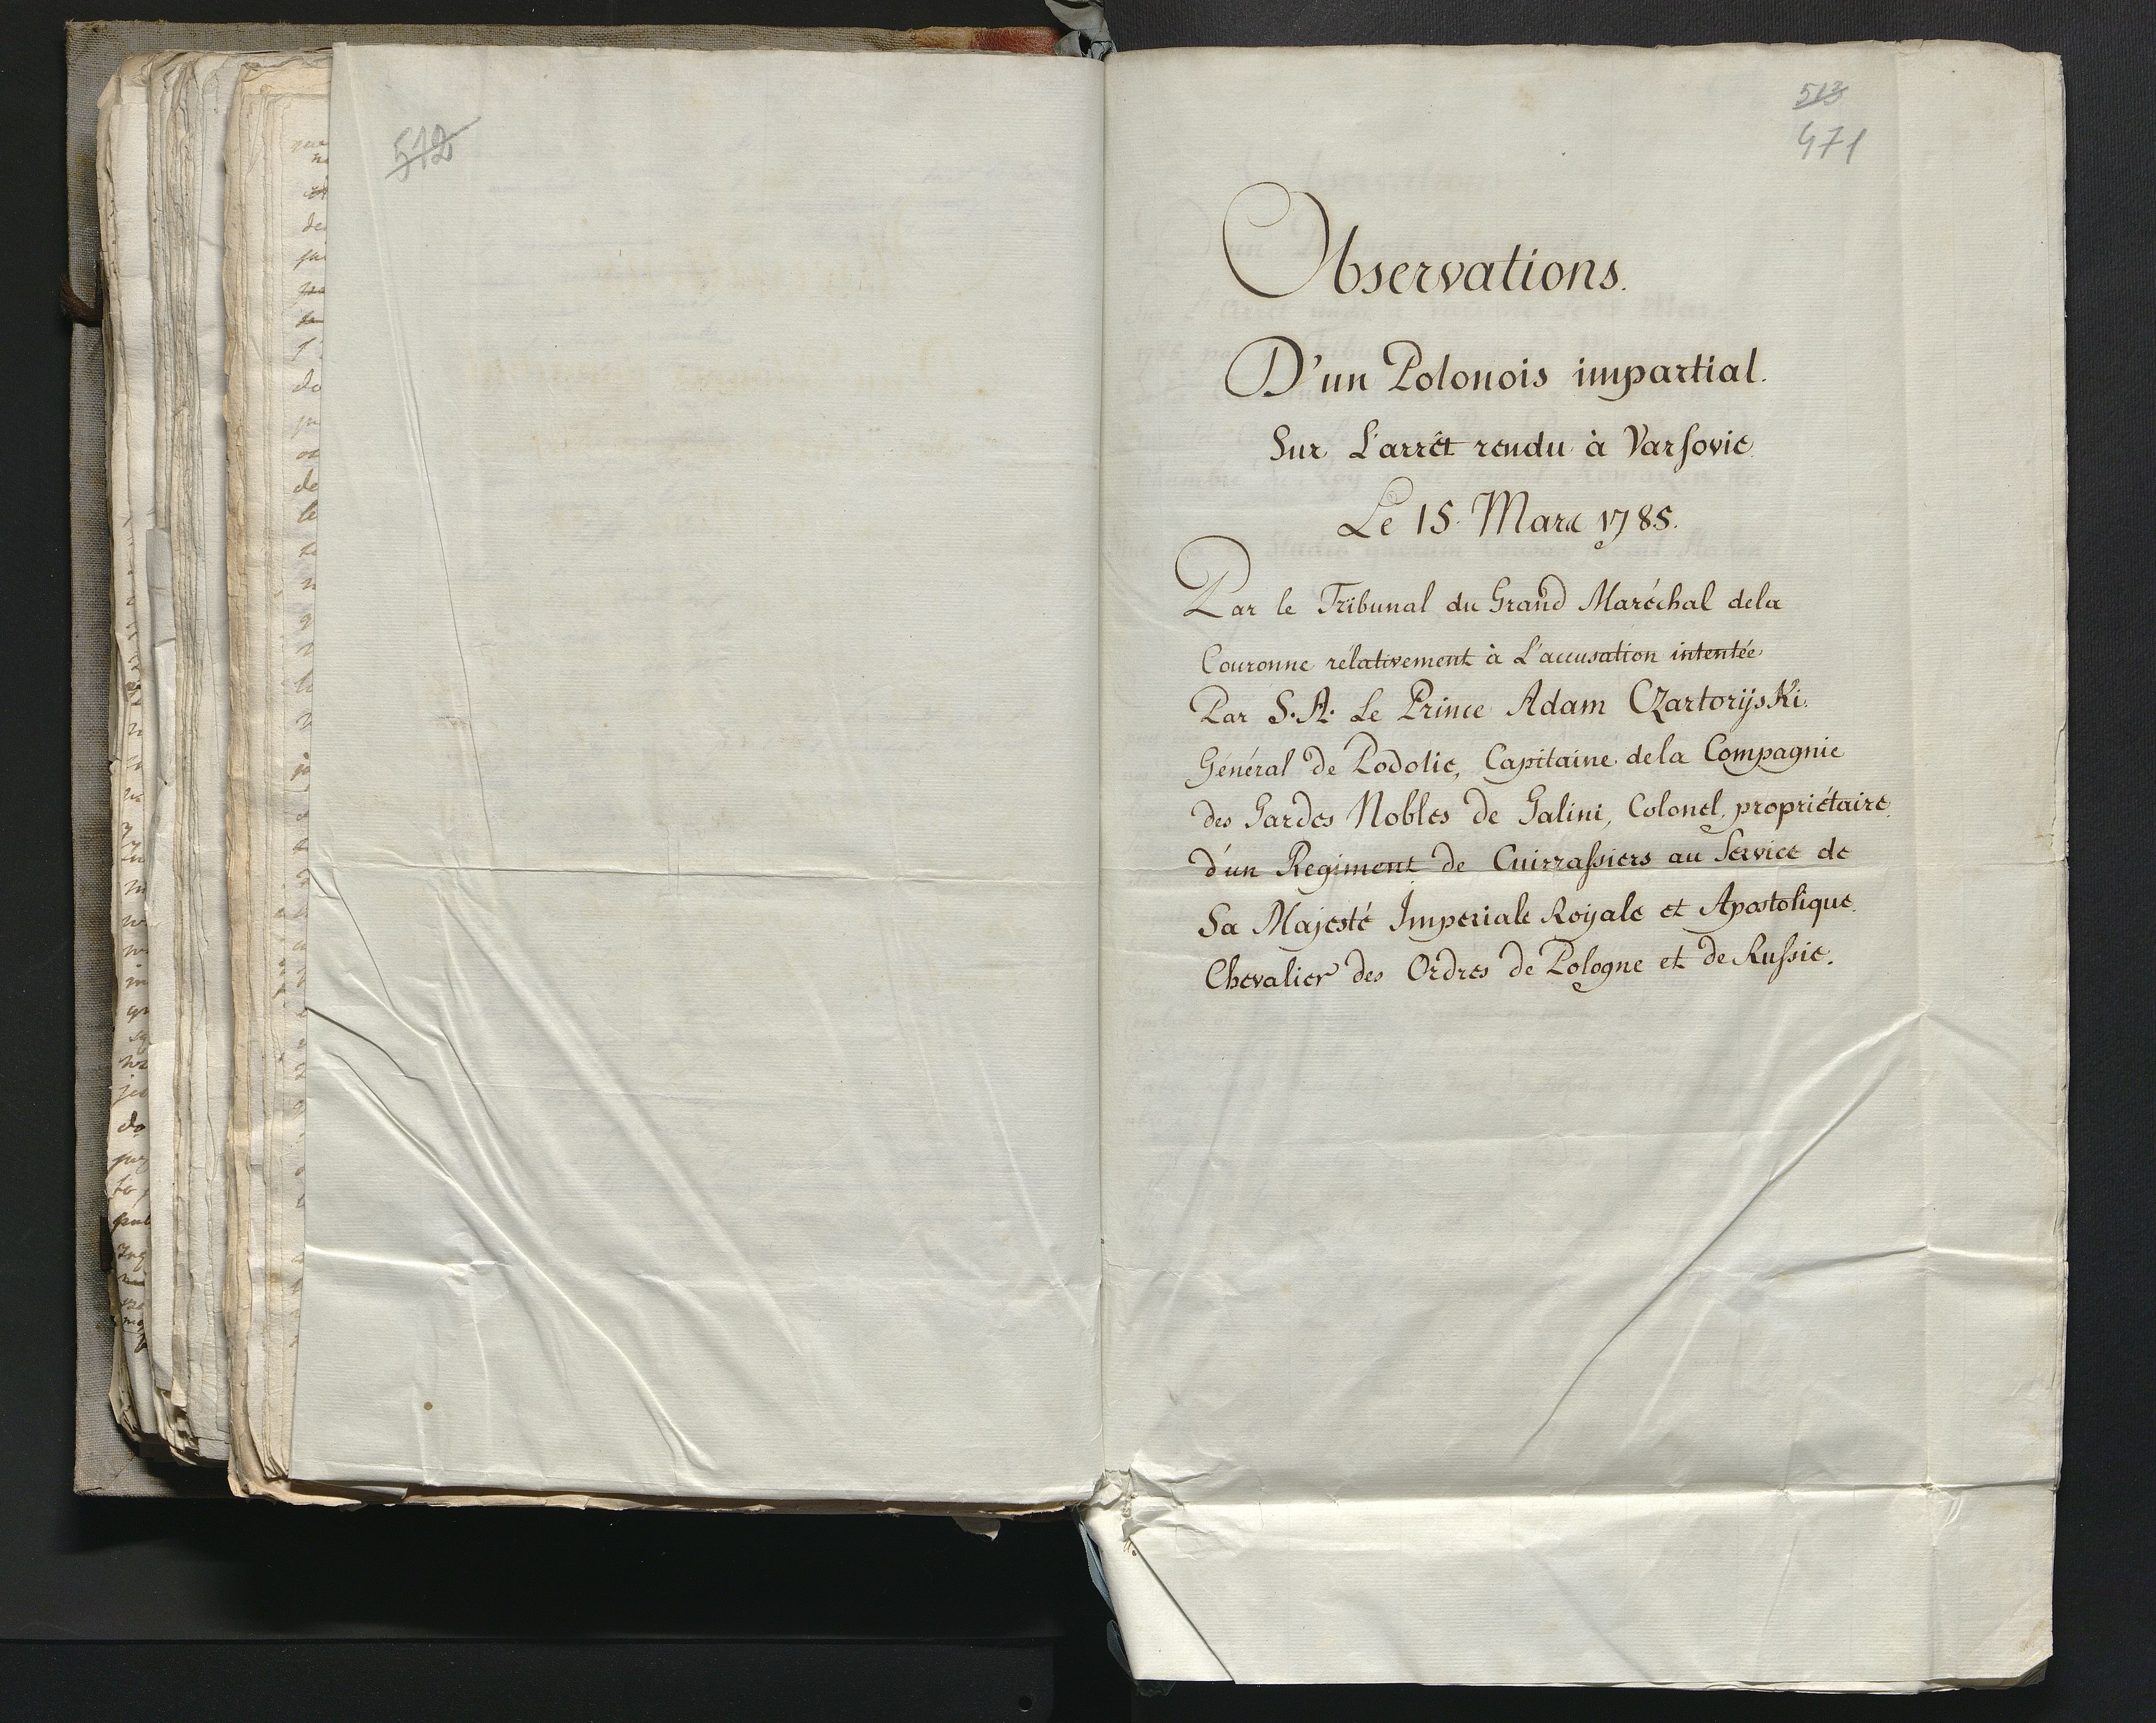 512
513
471
Observations.
D'un Polonois impartial.
Sur L'arrêt rendu à Varsovie
Le 15. Mars 1785.
Par le Tribunal du Grand Maréchal dela
Couronne rélativement à L'accusation intentée
Par S. A. Le Prince Adam Czartorijski.
Général de Podolie, Capitaine dela Compagnie
des Gardes Nobles de Galini, Colonel propriétaire
d'un Regiment de Cuirrassiers au Service de
Sa Majesté Imperiale Roijale et Apostolique.
Chevalier des Ordres de Pologne et de Russie.